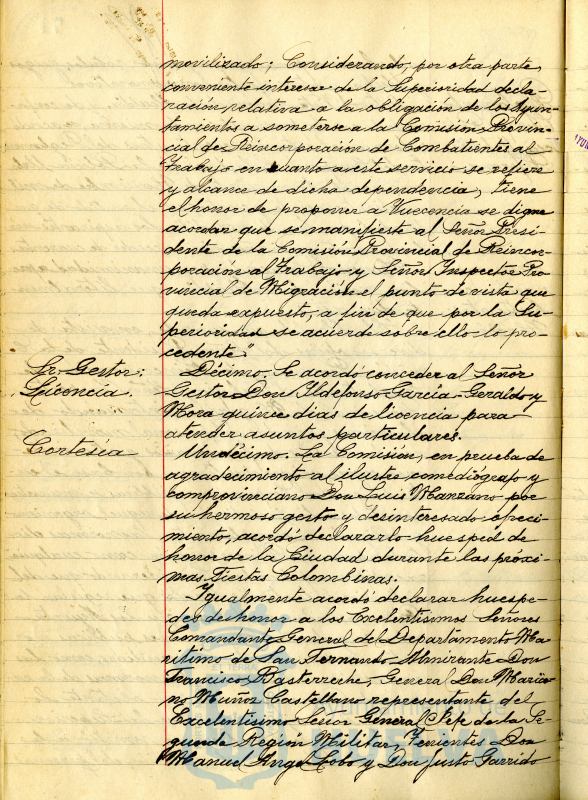 movilizado; Considerando, por otra parte,
conveniente interesar de la Superioridad decla-
ración relativa a la obligación de los Ayun-
tamientos a someterse a la Comisión Provin-
cial de Reincorporación de Combatientes al
Trabajo en cuanto a este servicio se refiere
y alcance de dicha dependencia, Tiene
el honor de proponer a Vuecencia se digne
acordar que se manifieste al Señor Presi-
dente de la Comisión Provincial de Reincor-
poración al Trabajo y Señor Inspector Pro-
vincial de Migración el punto de vista que
queda expuesto, a fin de que por la Su-
perioridad se acuerde sobre ello lo pro-
cedente."
Sr. Gestor:
Licencia.
Décimo. Se acordó conceder al Señor
Gestor Don Ildefonso García-Geraldo y
Mora quince dias de licencia para
atender asuntos particulares.
Cortesía
Undécimo. La Comisión, en prueba de
agradecimiento al ilustre comediógrafo y
comprovinciano Don Luis Manzano por
su hermoso gesto y desinteresado ofreci-
miento, acordó declararlo huesped de
honor de la Ciudad durante las próxi-
mas Fiestas Colombinas.
Igualmente acordó declarar huespe-
des de honor a los Excelentísimos Señores
Comandante General del Departamento Ma-
rítimo de San Fernando Almirante Don
Francisco Basterreche, General Don Maria-
no Muñoz Castellano representante del
Excelentísimo Señor General Jefe de la Se-
gunda Región Militar, Tenientes Don
Manuel Angel Lobo y Don Justo Garrido